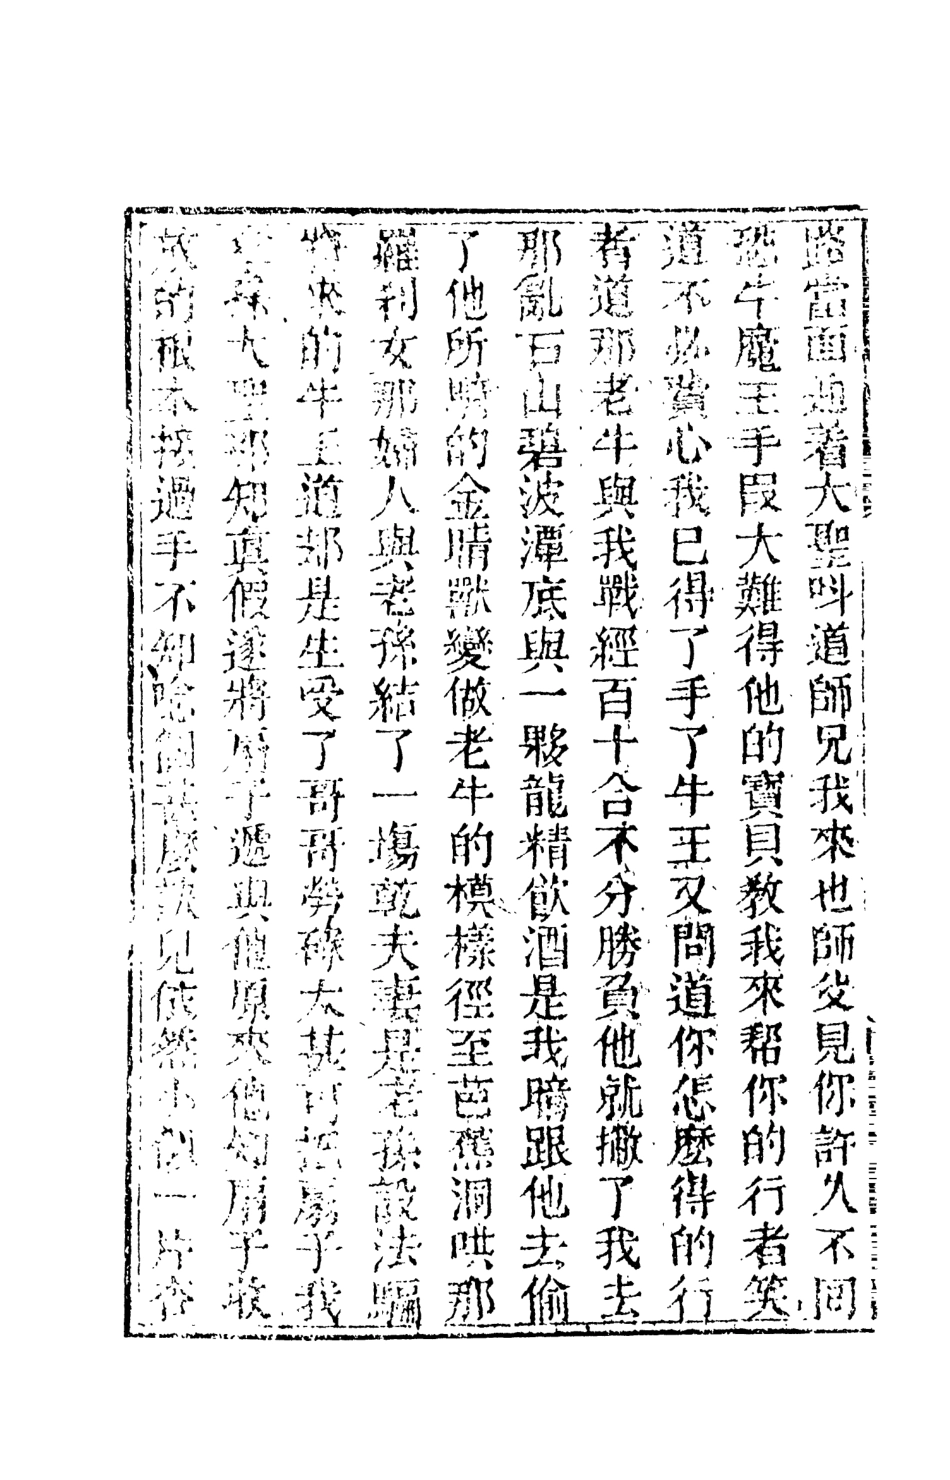 路當面迎着大聖呌道師兄我來也師父見你許久不囘
恐牛魔王手段大難得他的寶貝教我來帮你的行者笑
道不必費心我已得了手了牛王又問道你怎麽得的行
者道那老牛與我戰經百十合不分勝負他就撇了我去
那亂石山碧波潭底與一夥龍精飲酒是我暗跟他去偷
了他所騎的金睛獸變做老牛的模樣徑至芭蕉洞哄那
羅刹女那婦人與老孫結了一塲乾夫妻是老孫設法騙
將來的牛王道却是生受了哥哥勞碌太甚可把扇子我
孫大聖那知真假遂將扇子遞與他原來他知扇子收
放的根本接過手不知捻個甚麽訣兒依然小似一片杏